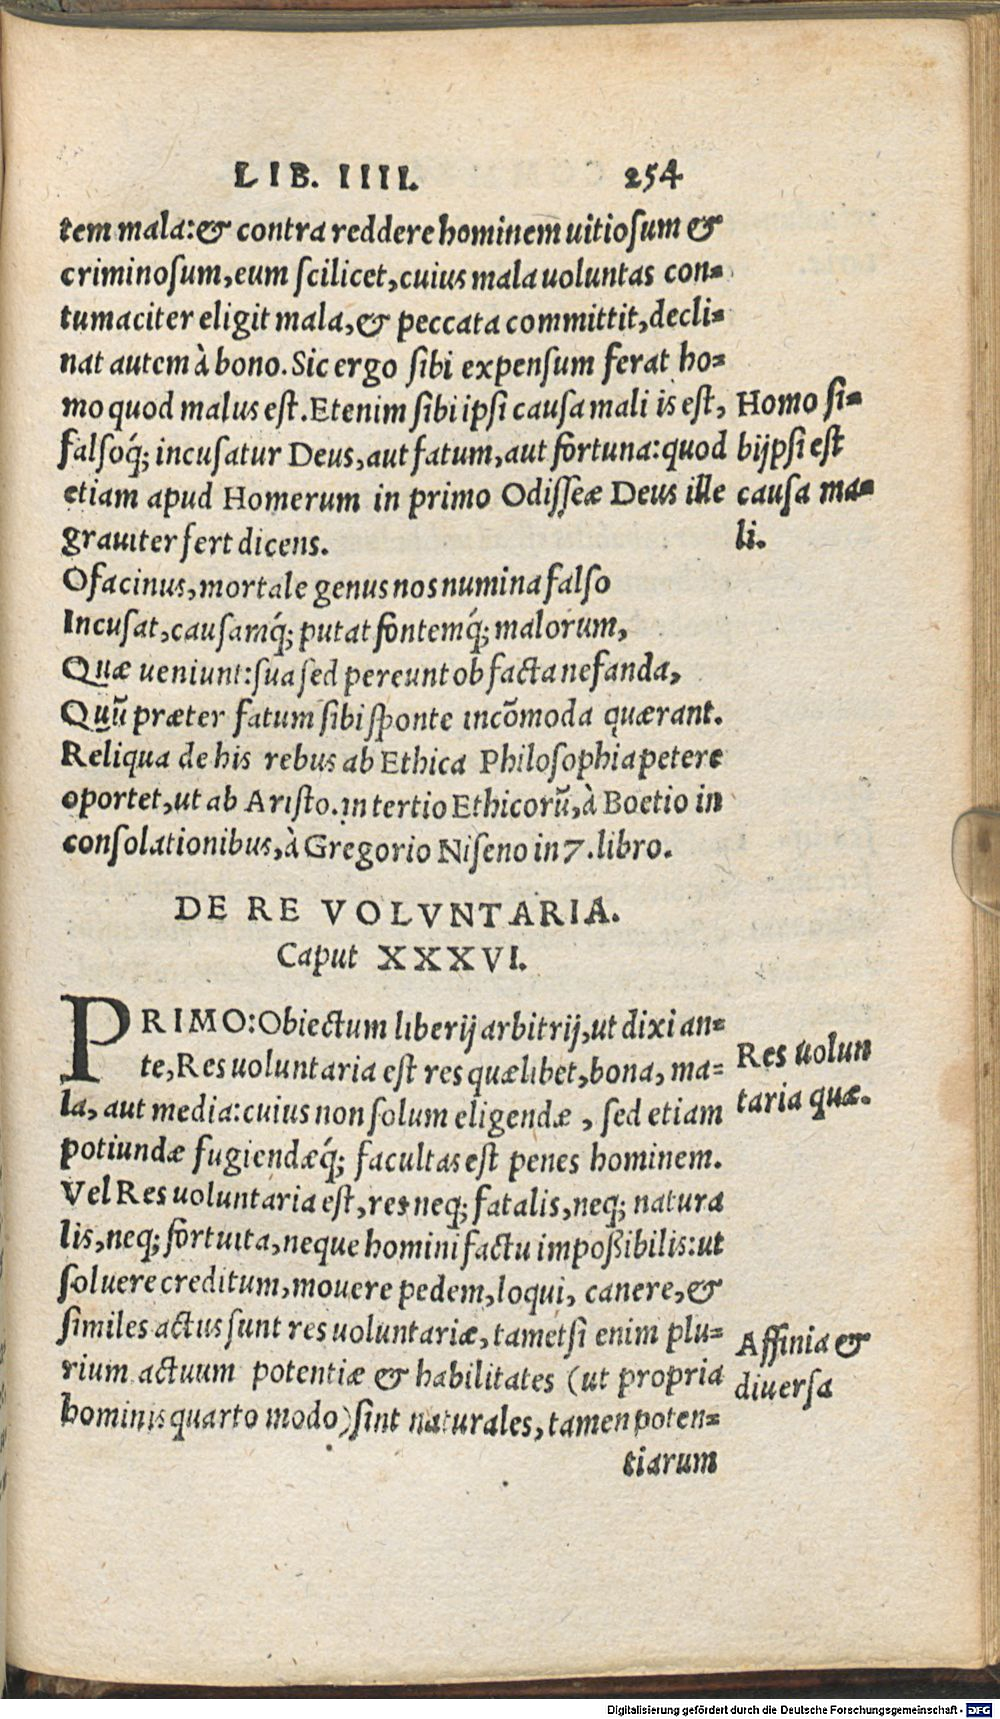 LIB. IIII. 254
tem mala: & contra reddere hominem uitiosum &
criminosum, eum scilicet, cuius mala uoluntas con-
tumaciter eligit mala, & peccata committit, decli-
nat autem à bono. Sic ergo sibi expensum ferat ho-
mo quod malus est. Etenim sibi ipsi causa mali is est,
falsoq́; incusatur Deus, aut fatum, aut fortuna: quod
etiam apud Homerum in primo Odisseæ Deus ille
grauiter fert dicens.
Homo si-
bijpsi est
causa ma-
li.
O facinus, mortale genus nos numina falso
Incusat, causamq́; putat fontemq́; malorum,
Quæ ueniunt: sua sed pereunt ob facta nefanda,
Quũ præter fatum sibi sponte incõmoda quærant.
Reliqua de his rebus ab Ethica Philosophia petere
oportet, ut ab Aristo. in tertio Ethicorũ, à Boetio in
consolationibus, à Gregorio Niseno in 7. libro.
DE RE VOLVNTARIA.
Caput XXXVI.
PRIMO: Obiectum liberij arbitrij, ut dixi an-
te, Res uoluntaria est res quælibet, bona, ma-
la, aut media: cuius non solum eligendæ, sed etiam
potiundæ fugiendæq́; facultas est penes hominem.
Vel Res uoluntaria est, res neq; fatalis, neq; natura
lis, neq; fortuita, neque homini factu impoßibilis: ut
soluere creditum, mouere pedem, loqui, canere, &
similes actus sunt res uoluntariæ, tametsi enim plu-
rium actuum potentiæ & habilitates (ut propria
hominis quarto modo) sint naturales, tamen poten-
tiarum
Res uolun
taria quæ.
Affinia &
diuersa
Digitalisierung gefördert durch die Deutsche Forschungsgemeinschaft - DFG